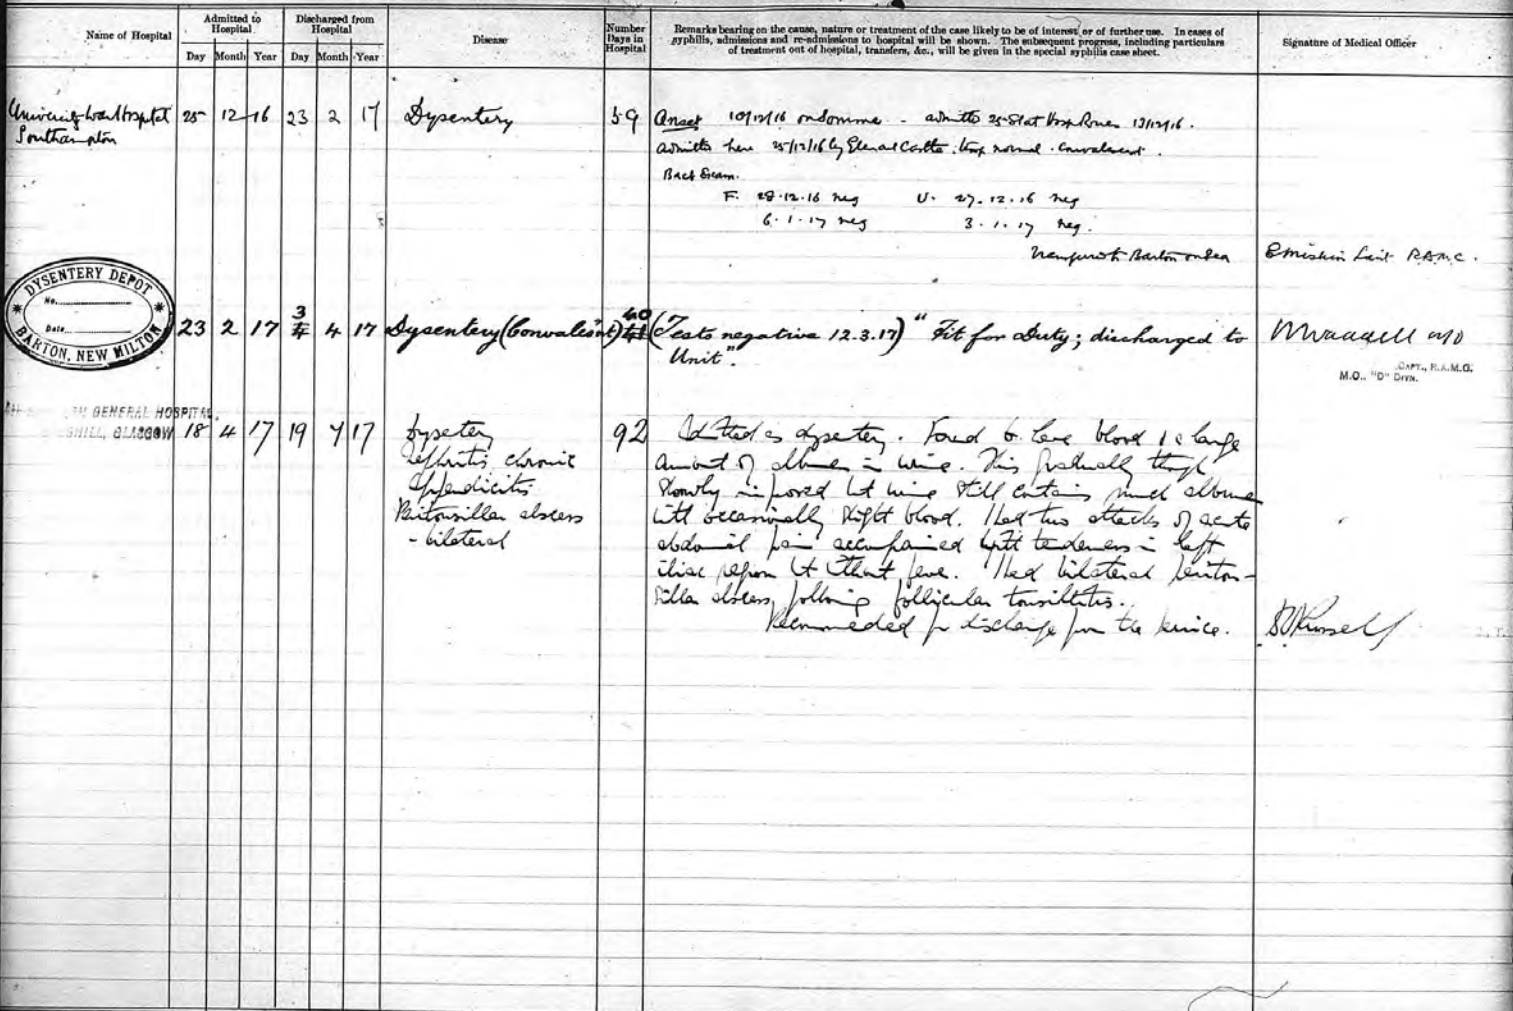 Name of Hospital
Admitted to Hospital
Day Month Year
Discharged from Hospital
Day Month Year
Disease
Number Days in Hospital
Remarks bearing on the cause, nature or treatment of the case likely to be of interest or of further use. In cases of
syphilis, admissions and re-admissions to hospital will be shown. The subsequent progress, including particulars
of treatment out of hospital, transfers, &c., will be given in the special syphilis case sheet.
Signature of Medical Officer
University War Hospital 25 12 16 23 2 17 Dysentery 59 Onset 10/12/16 on Somme - admitted 25 Stat Hosp Rouen 13/12/16.
Southampton
Admitted here 25/12/16 by Glenart Castle. temp normal. Convalescent.
Bact Exam.
F. 28.12.16 neg U. 27.12.16 neg
6.1.17 neg 3.1.17 neg.
Barton on Sea Lieut R.A.M.C.
DYSENTERY DEPOT
No.
Date
BARTON, NEW MILTON
23 2 17 3 4 17 Dysentery (Convalescent) 40 (Tests negative 12.3.17) "Fit for Duty; discharged to
Unit".
CAPT., R.A.M.C.
M.O., "D" DIVN.
GENERAL HOSPITAL,
GLASGOW 18 4 17 19 7 17 Dysentery 92 Admitted as dysentery. Found to have blood & a large
Nephritis, chronic amount of albumen in urine. This gradually though
Appendicitis slowly improved but urine still contains much albumen
Peritonsillar abscess with occasionally slight blood. Had two attacks of acute
- bilateral abdominal pain accompanied with tenderness in left
iliac region but without fever. Had bilateral periton-
sillar abscess, following follicular tonsillitis.
Recommended for discharge from the service. Russell